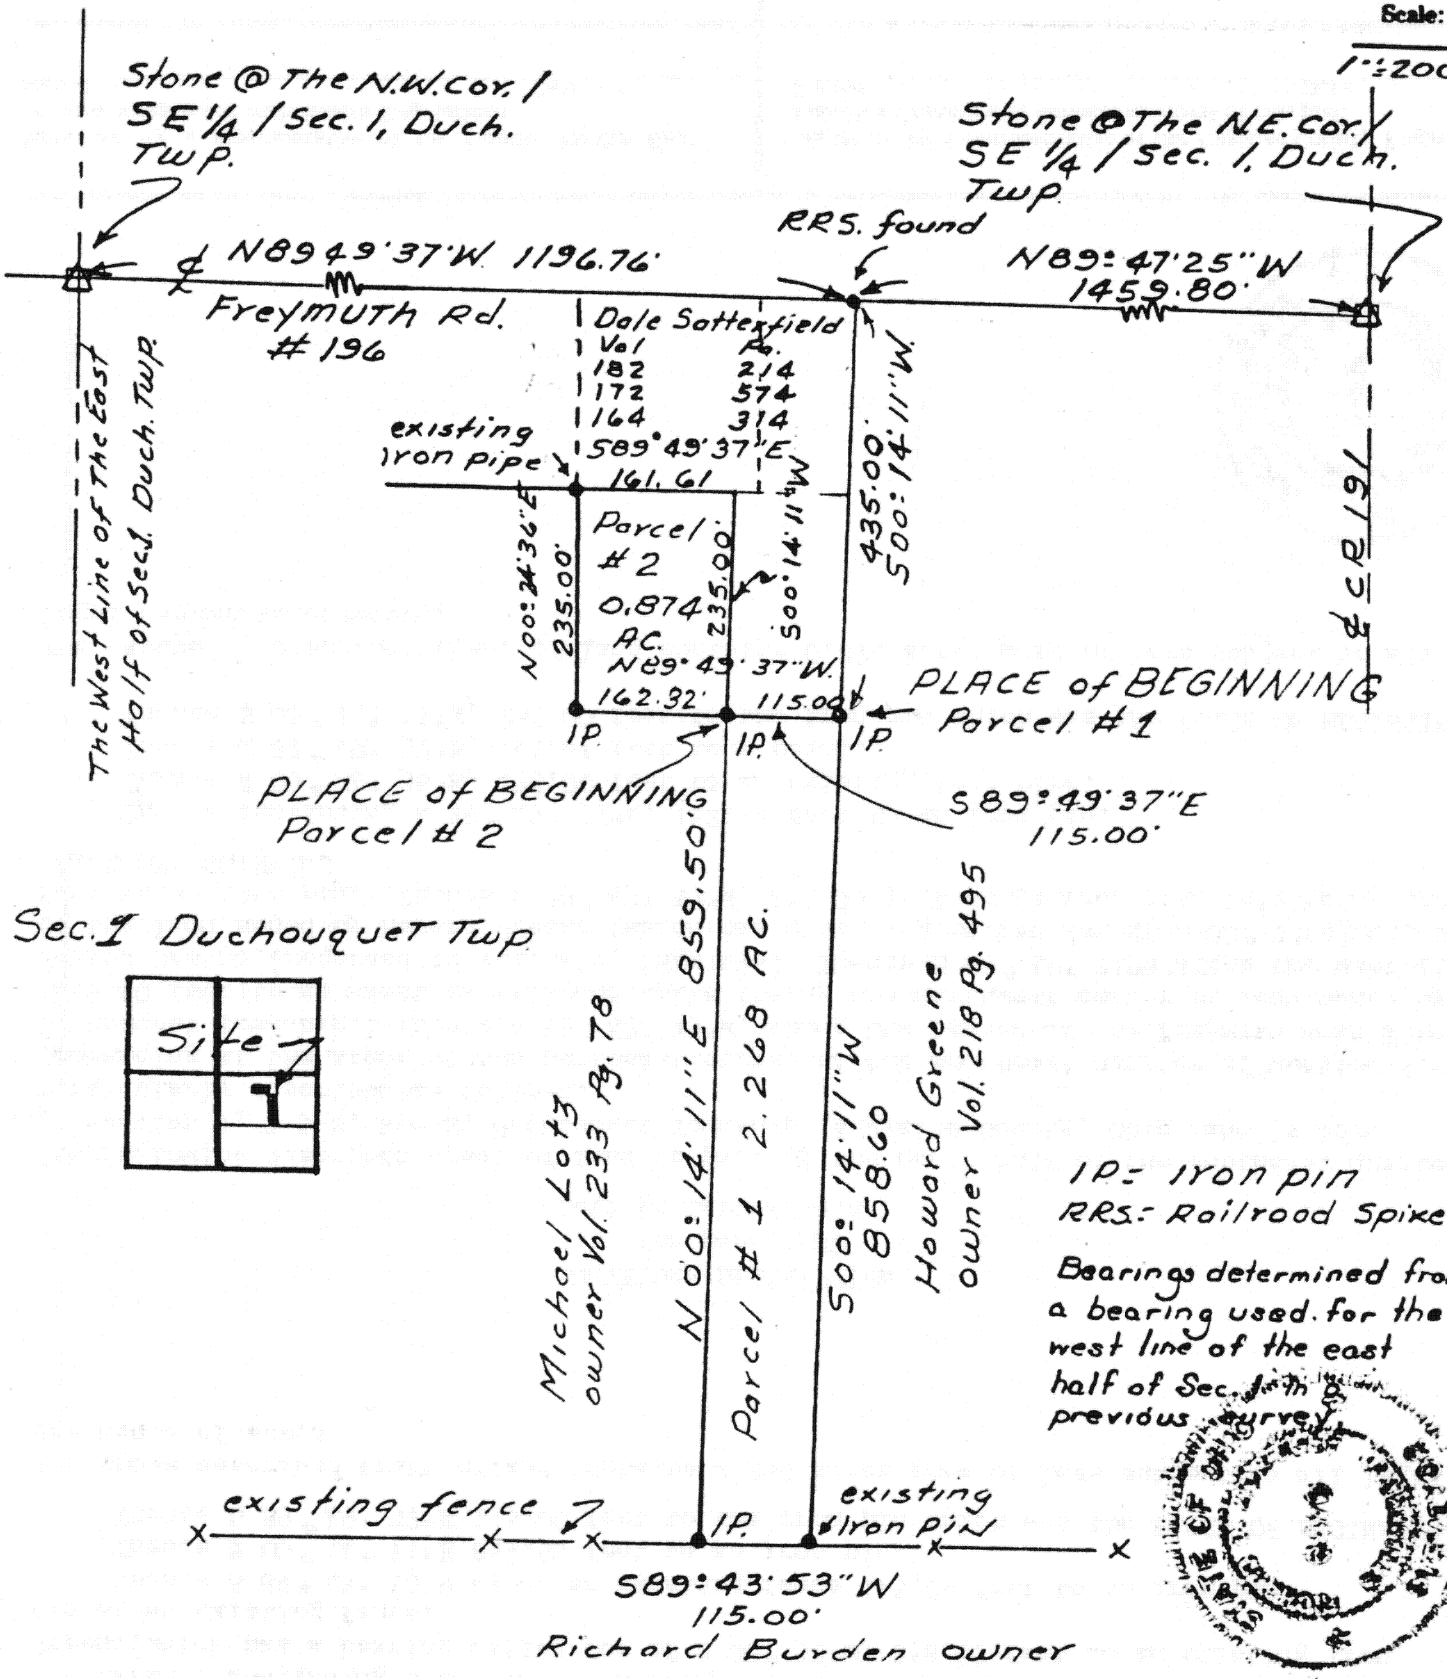 Scale:
1"=200
Stone @ The N.W. Cor. /
SE 1/4 / Sec. 1, Duch.
TWP.
Stone @ The N.E. Cor. /
SE 1/4 / Sec. 1, Duch.
TWP.
RRS. found
N89 49' 37" W 1196.76'
N89° 47' 25" W
1459.80'
Freymuth Rd.
# 196
Dale Satterfield
Vol Pg.
182 214
172 574
164 314
S89° 49' 37" E
161.61
existing
iron pipe
The West Line of The East
Half of Sec. 1. Duch. Twp.
N00° 24' 36" E
235.00'
Parcel
# 2
0.874
AC.
235.00'
S00° 14' 11" W
435.00'
S00° 14' 11" W.
℄ CR 191
N89° 49' 37" W.
162.32'
115.00
IP.
IP.
IP.
PLACE of BEGINNING
Parcel # 1
PLACE of BEGINNING
Parcel # 2
S89° 49' 37" E
115.00'
Sec. 1 Duchouquet Twp
Site
Michael Lotz
owner Vol. 233 Pg 78
N 00° 14' 11" E 859.50'
Parcel # 1 2.268 AC.
S00° 14' 11" W
858.60
Howard Greene
owner Vol. 218 Pg. 495
IP = Iron pin
RRS. = Railroad Spike
Bearings determined fro
a bearing used for the
west line of the east
half of Sec. 1 in a
previous survey.
STATE OF OHIO
existing fence
IP.
existing
Iron pin
S89° 43' 53" W
115.00'
Richard Burden owner